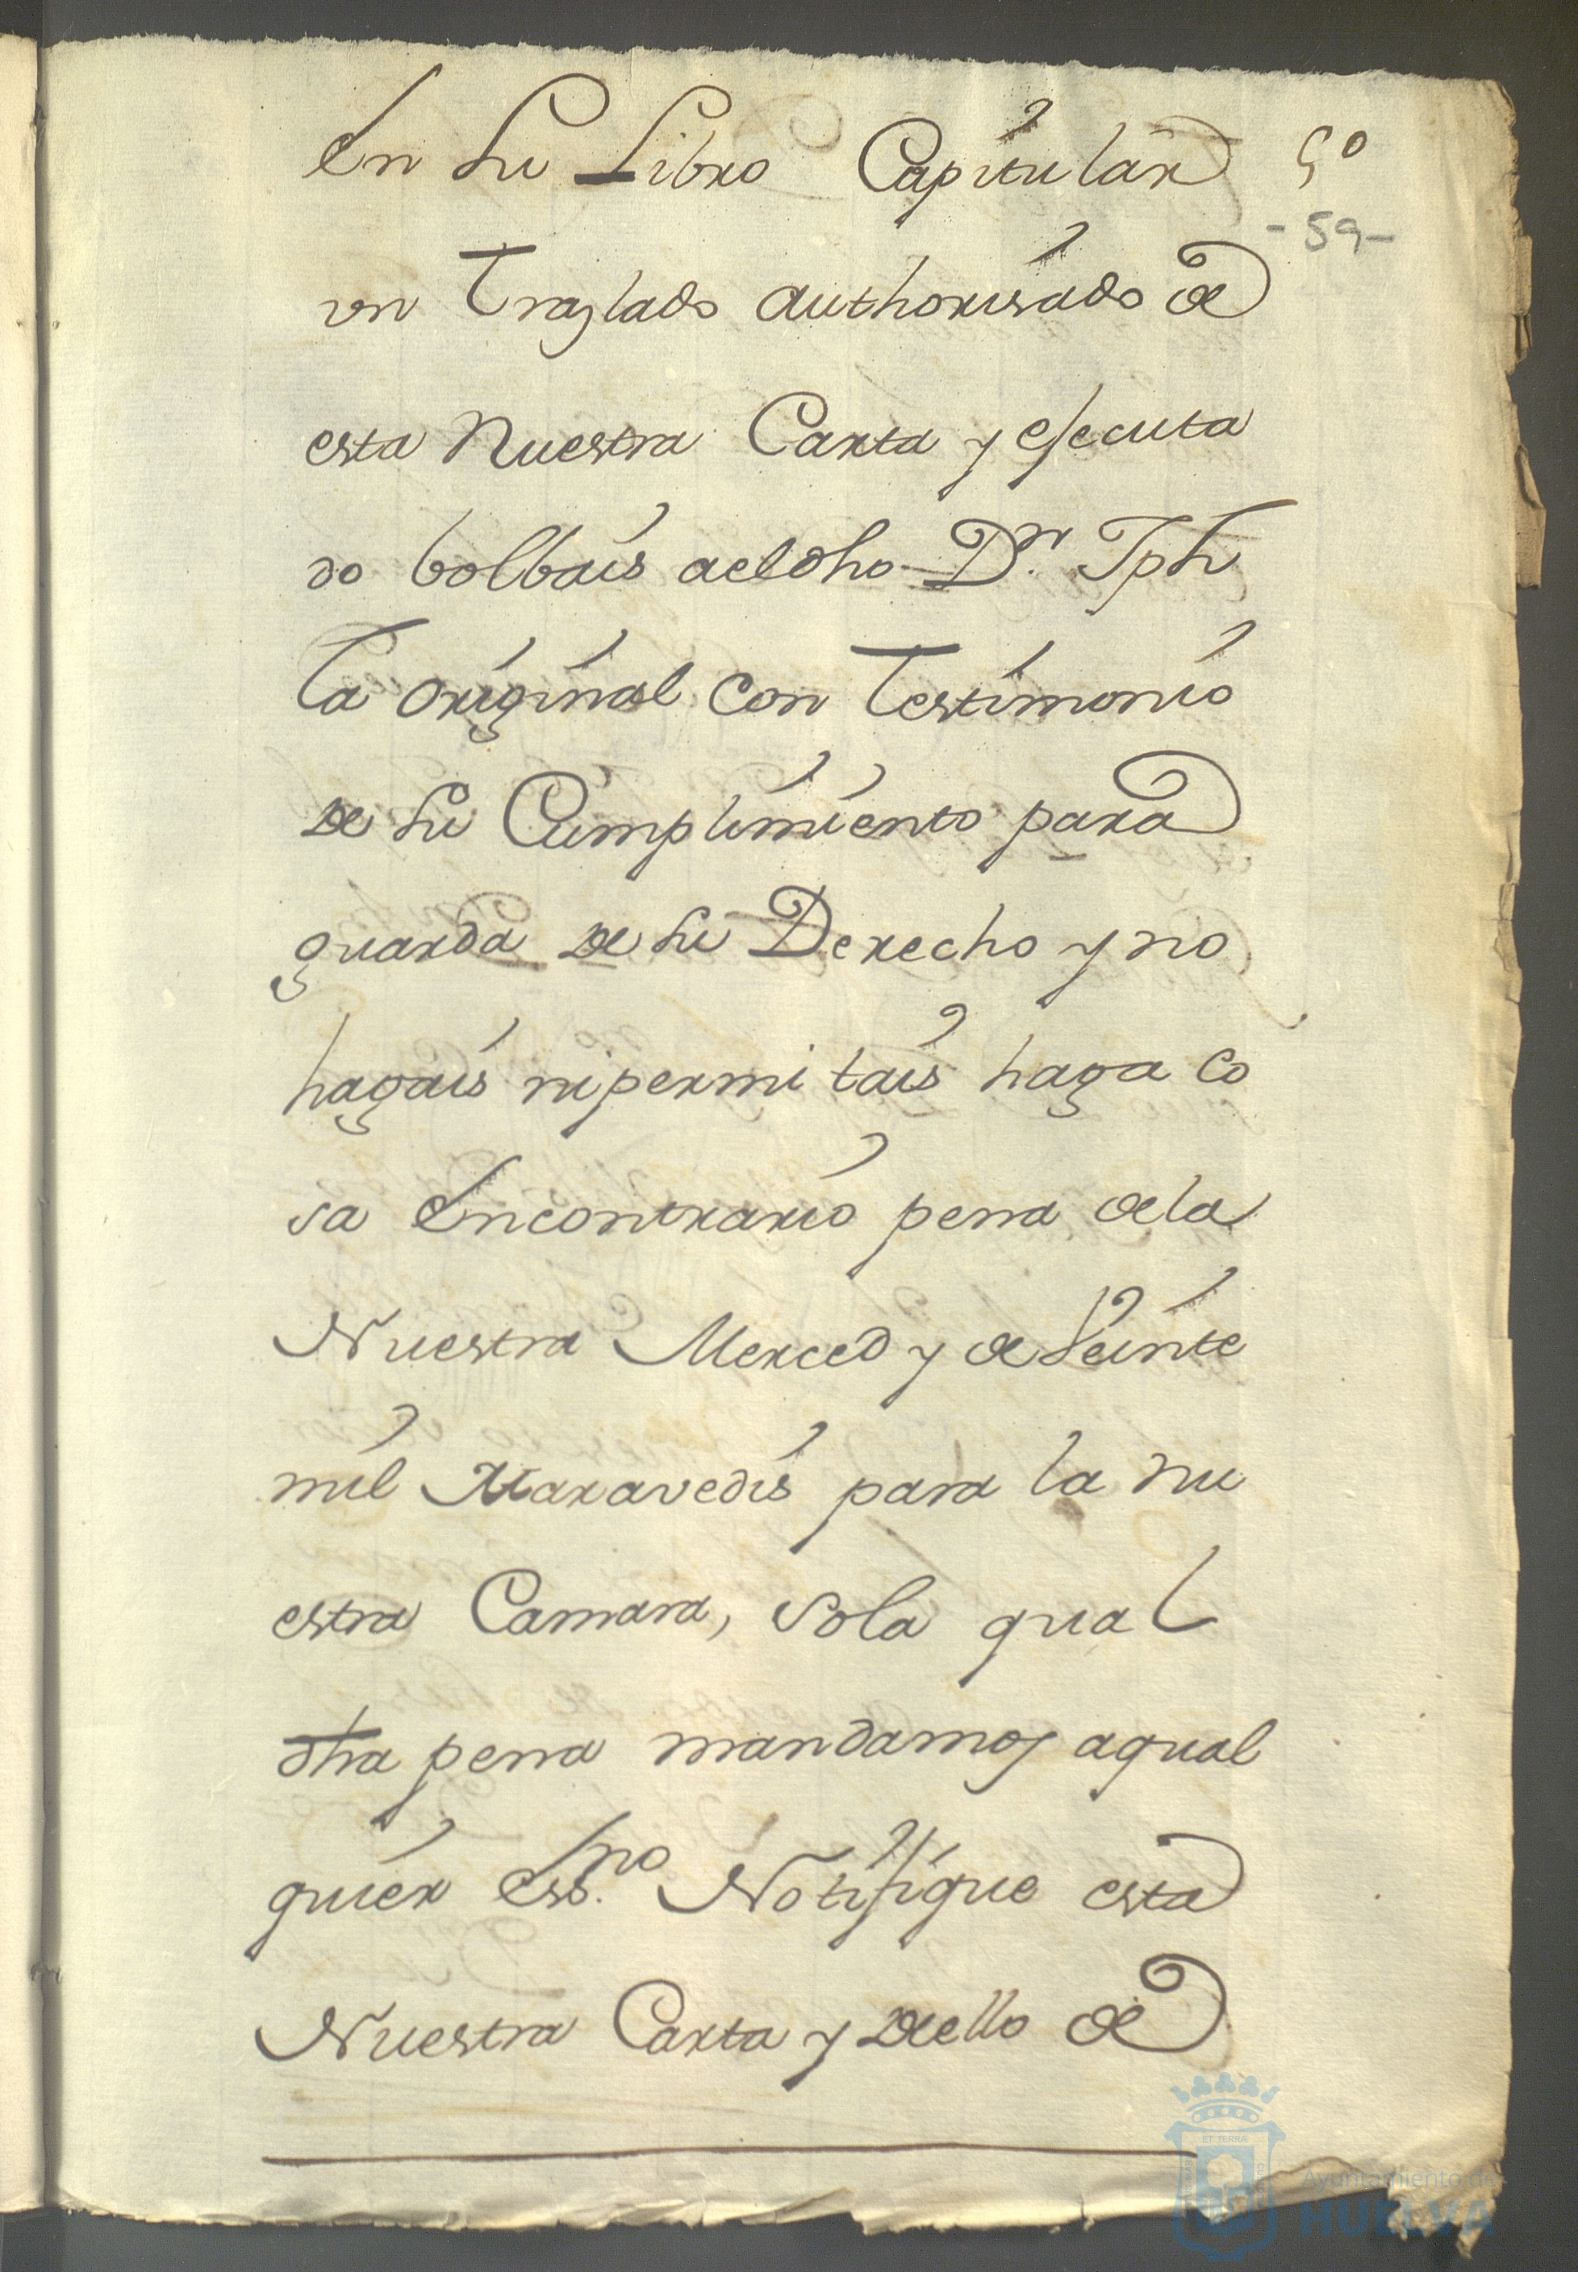 En Su Libro Capitular 5º
-59-
un Traslado authorisado de
esta Nuestra Carta y ejecuta
do bolbais aeldho Dn. Jph
la original con Testimonio
de Su Cumplimiento para
guarda de Su Derecho y no
hagais nipermitais haga co
sa Encontrario pena dela
Nuestra Merced y de Veinte
mil Maravedis para la nu
estra Camara, Sola qual
dha pena mandamos aqual
quier essno. Notifique esta
Nuestra Carta y dello de
ET TERRÆ
Ayuntamiento de
HUELVA